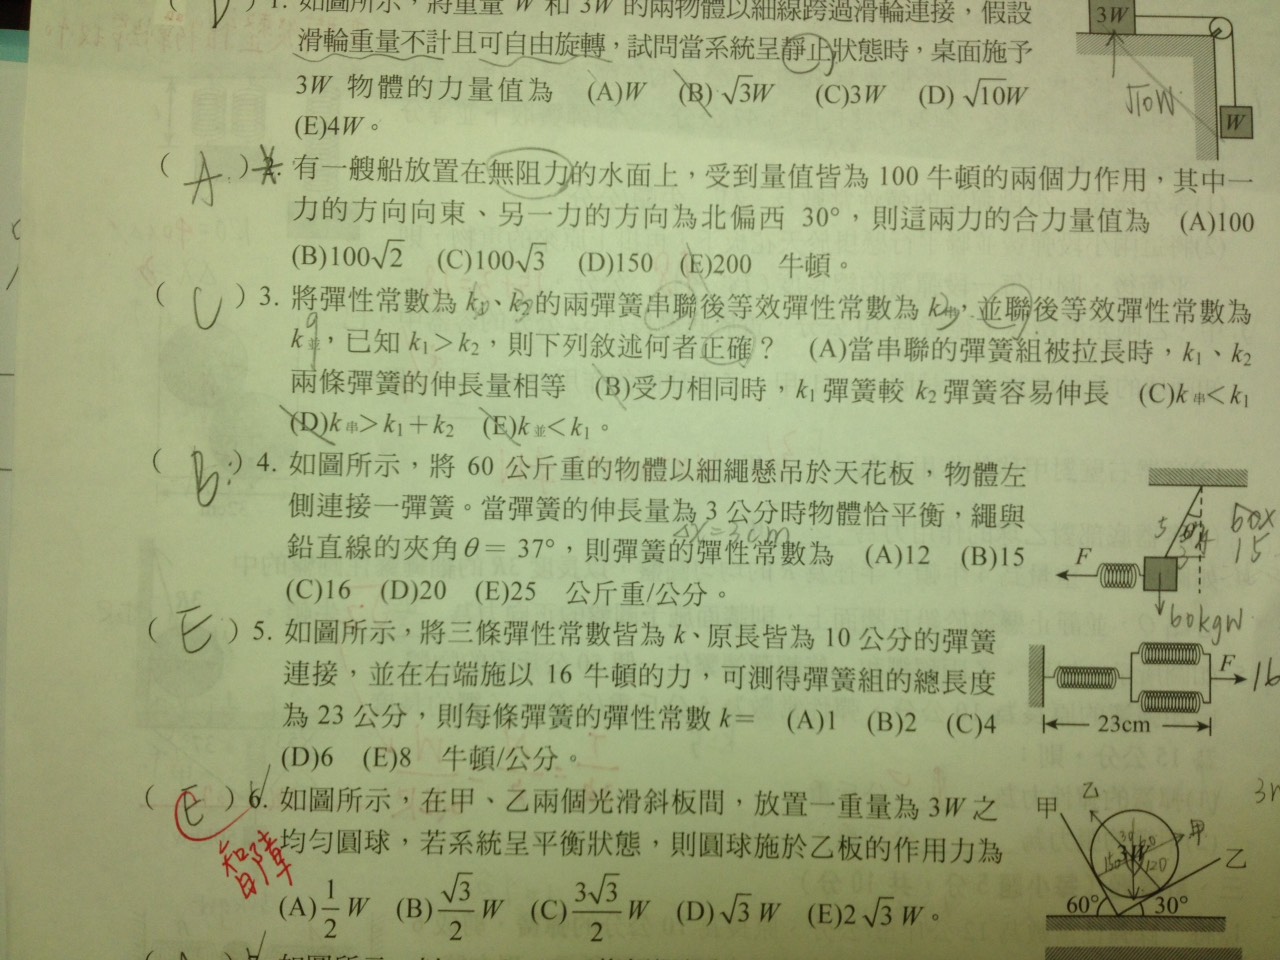 ( D ) 1. 如圖所示，將重量 W 和 3W 的兩物體以細線跨過滑輪連接，假設
滑輪重量不計且可自由旋轉，試問當系統呈靜止狀態時，桌面施予
3W 物體的力量值為 (A)W (B)√3W (C)3W (D)√10W
(E)4W。
3W
√10W
W
( A ) 2. 有一艘船放置在無阻力的水面上，受到量值皆為 100 牛頓的兩個力作用，其中一
力的方向向東、另一力的方向為北偏西 30°，則這兩力的合力量值為 (A)100
(B)100√2 (C)100√3 (D)150 (E)200 牛頓。
( C ) 3. 將彈性常數為 k₁、k₂的兩彈簧串聯後等效彈性常數為 k串，並聯後等效彈性常數為
k並，已知 k₁＞k₂，則下列敘述何者正確？ (A)當串聯的彈簧組被拉長時，k₁、k₂
兩條彈簧的伸長量相等 (B)受力相同時，k₁彈簧較 k₂彈簧容易伸長 (C)k串＜k₁
(D)k串＞k₁＋k₂ (E)k並＜k₁。
( B ) 4. 如圖所示，將 60 公斤重的物體以細繩懸吊於天花板，物體左
側連接一彈簧。當彈簧的伸長量為 3 公分時物體恰平衡，繩與
△x=3cm
鉛直線的夾角θ＝37°，則彈簧的彈性常數為 (A)12 (B)15
(C)16 (D)20 (E)25 公斤重/公分。
5
θ
4
3
60x
15
F
60kgw
( E ) 5. 如圖所示，將三條彈性常數皆為 k、原長皆為 10 公分的彈簧
連接，並在右端施以 16 牛頓的力，可測得彈簧組的總長度
為 23 公分，則每條彈簧的彈性常數 k＝ (A)1 (B)2 (C)4
(D)6 (E)8 牛頓/公分。
F
16
23cm
( E ) 6. 如圖所示，在甲、乙兩個光滑斜板間，放置一重量為 3W 之
均勻圓球，若系統呈平衡狀態，則圓球施於乙板的作用力為
智障
(A)1/2 W (B)√3/2 W (C)3√3/2 W (D)√3 W (E)2√3 W。
甲
乙
甲
乙
30
60
150
120
3W
60°
30°